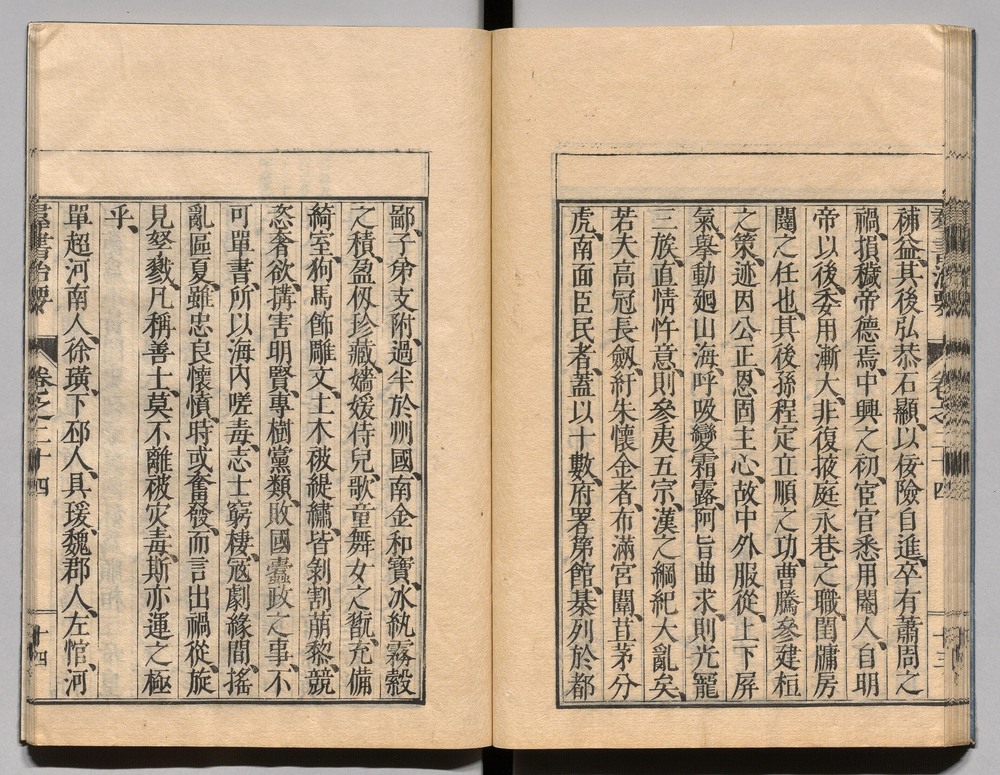 羣書治要 卷之二十四 十三
裨益、其後弘恭石顯、以佞險自進、卒有蕭周之
禍、損穢帝德焉、中興之初、宦官悉用閹人、自明
帝以後、委用漸大、非復掖庭永巷之職、閨牖房
闥之任也、其後孫程定立順之功、曹騰參建桓
之策、迹因公正、恩固主心、故中外服從、上下屏
氣、擧動廻山海、呼吸變霜露、阿旨曲求、則光寵
三族、直情忤意、則參夷五宗、漢之綱紀大亂矣、
若夫高冠長劔、紆朱懷金者、布滿宮闈、苴茅分
虎、南面臣民者、蓋以十數、府署第館、棊列於都
鄙、子弟支附、過半於州國、南金和寶、冰紈霧縠
之積、盈仭珍藏、嬙媛侍兒、歌童舞女之翫、充備
綺室、狗馬飾雕文、土木被緹繡、皆剝割萠黎、競
恣奢欲、搆害明賢、專樹黨類、敗國蠹政之事、不
可單書、所以海內嗟毒、志士窮棲、寇劇緣間、搖
亂區夏、雖忠良懷憤、時或奮發、而言出禍從、旋
見孥戮、凡稱善士、莫不離被灾毒、斯亦運之極
乎、
單超河南人、徐璜、下邳人、具瑗、魏郡人、左悺、河
羣書治要 卷之二十四 十四